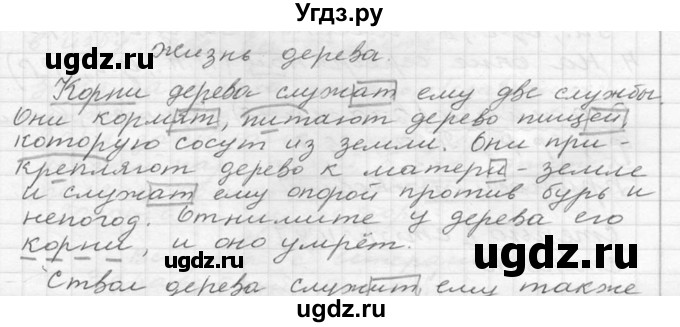 Угдз.ру
Жизнь дерева.
Корни дерева служат ему две службы.
Они кормят, питают дерево пищей,
которую сосут из земли. Они при-
крепляют дерево к матери-земле
и служат ему опорой против бурь и
непогод. Отнимите у дерева его
корни, и оно умрёт.
Ствол дерева служит ему также
ugdz.ru ugdz.ru
ugdz.ru ugdz.ru
ugdz.ru ugdz.ru
ugdz.ru ugdz.ru
ugdz.ru